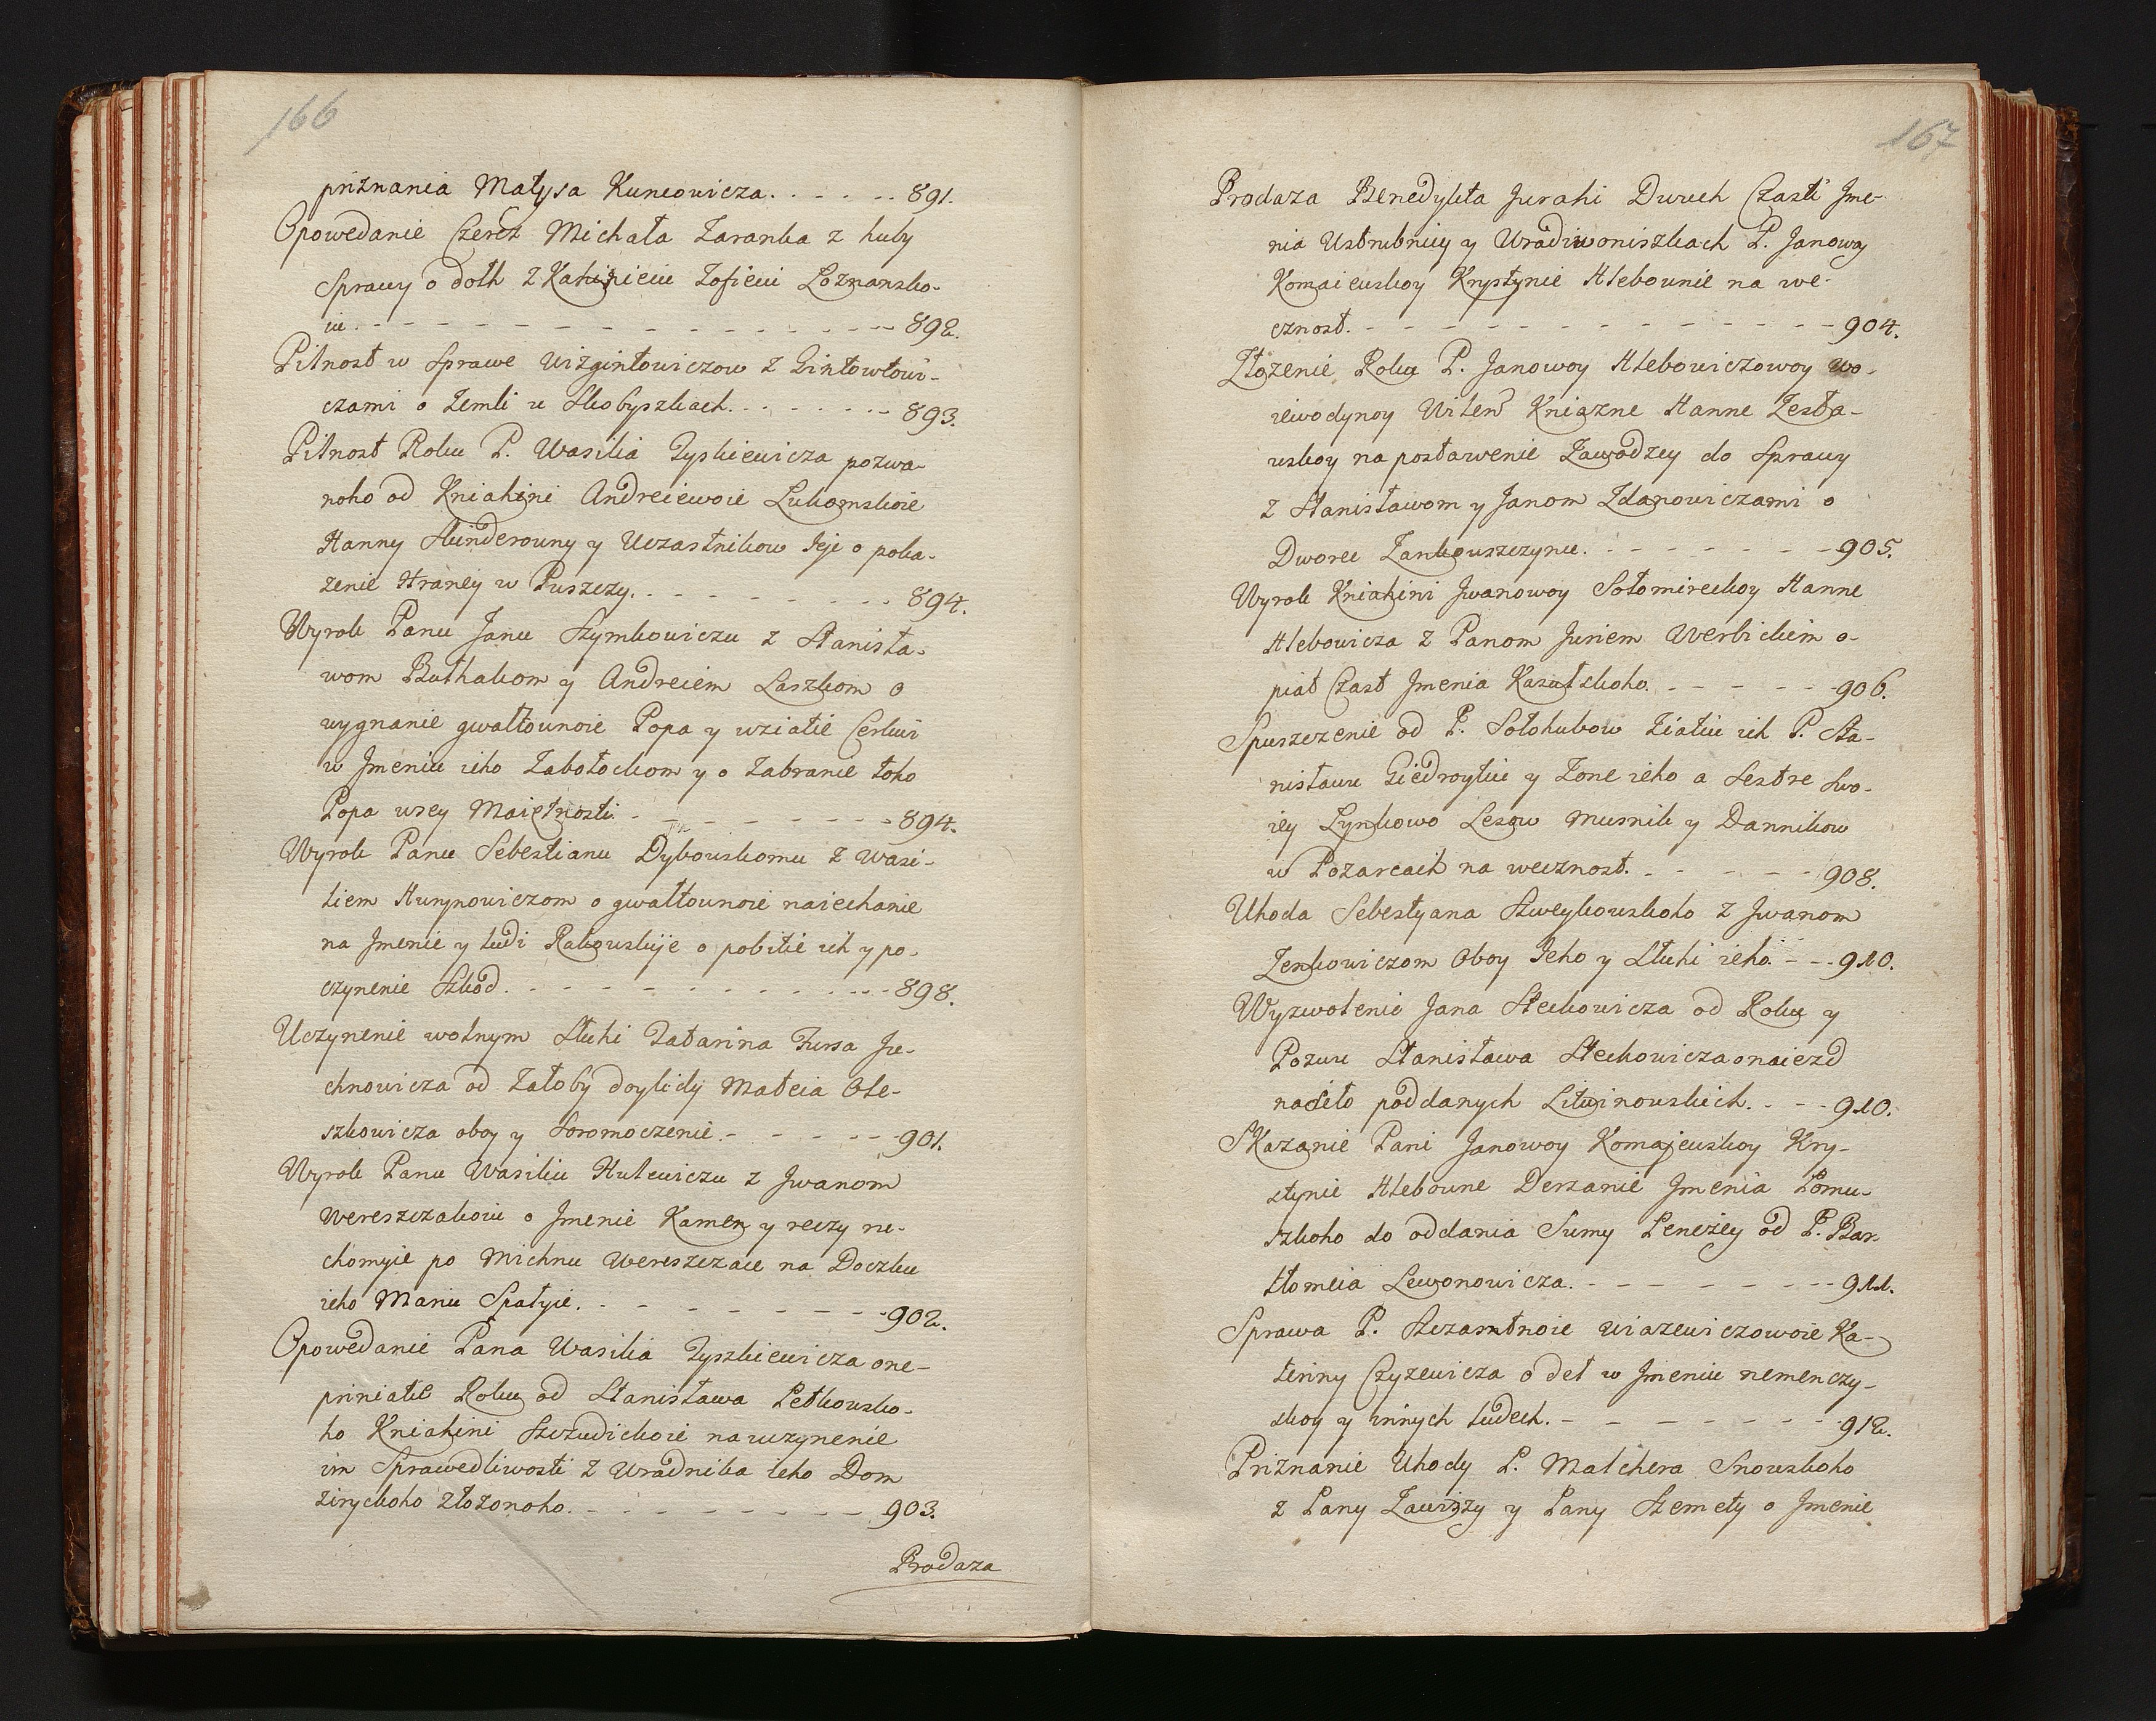 166
priznania Matysa Kuncowicza. - - - - - - 891.
Opowedanie Czerez Michała Zaranka z huby
Sprawy o dołh z Kahinieiu Zofieiu Łoznansko-
iu. - - - - - - - - - - - - - - - - 892.
Pilnost w Sprawe Wizgintowiczow z Gintowtowi-
czami o Zemli u Skobyszkach. - - - - - - - 893.
Pilnost Roku P. Wasilia Tyskiewicza pozwa-
noho od Kniahini Andreiewoie Lukomskoie
Hanny Skinderowny y Uczastnikow Jeje o poka-
zenie Hraney w Puszczy. - - - - - - - - - 894.
Wyrok Panu Janu Szymkowiczu z Stanisła-
wom Buthakom y Andreiem Laszkom o
wygnanie gwałtownoie Popa y wziatie Cerkwi
w Jmeniu ieho Zabołockom y o Zabranie toho
Popa wsey Maiętnosti. - - - - - - - - - 894.
Wyrok Panu Sebestianu Dybowskomu z Wasi-
liem Hurynowiczom o gwałtownoie naiechanie
na Jmenie y ludi Rakowskije o pobitie ich y po-
czynenie Szkod. - - - - - - - - - - - - 898.
Uczynenie wolnym Słuhi Tatarina Fursa Ju-
chnowicza od Załoby doylidy Mateia Ole-
szkowicza oboy y Soromoczenie. - - - - - - 901.
Wyrok Panu Wasiliu Hulewiczu z Jwanom
Wereszczakoiu o Jmenie Kamen y reczy ru-
chomyie po Michnu Wereszczace na Doczku
ieho Maniu Spałyie. - - - - - - - - - 902.
Opowedanie Pana Wasilia Tyszkiewicza o ne-
priniatie Roku od Stanisława Petkowsko-
ho Kniahini Szczudickoie na uczynenie
im Sprawedliwosti z Uradnika ieho Dom
ziryckoho złożonoho. - - - - - - - - - 903.
Prodaza
167
Prodaza Benedykta Jurahi Dwuch Czasti Jme-
nia Ustrubniey y Uradiwoniszkach P. Janowoy
Komaiewskoy Krystynie Hlebownie na we-
cznost. - - - - - - - - - - - - - - - 904.
Złozenie Roku P. Janowoy Hlebowiczowoy Wo-
iewodynoy Wilen Kniazne Hanne Zesła-
wskoy na postawenie Zawodzey do Sprawy
z Stanisławom y Janom Zdanowiczami o
Dworec Zankowszczynu. - - - - - - - - 905.
Wyrok Kniahini Jwanowoy Sołomireckoy Hanne
Hlebowicza z Panom Juriem Werbickim o-
piat Czast Jmenia Kazutskoho. - - - - - - 906.
Spuszczenie od P. Sołohubow Ziatiu ich P. Sta-
nisławu Giedroytiu y Zone ieho a Sestre Swo-
iey Lynkowo Lesow Musnik y Dannikow
w Pozarcach na wecznost. - - - - - - 908.
Uhoda Sebestyana Szweykowskoho z Jwanom
Zenkowiczom Oboy Jeho y Słuhi ieho. - - - 910.
Wyzwolenie Jana Steckowicza od Roku y
Pozwu Stanisława Steckowicza o naiezd
na sieło poddanych Litwinowskich. - - - 910.
Skazanie Pani Janowoy Komajewskoy Kry-
stynie Hlebowne Derzanie Jmenia Łomu-
szkoho do oddania Sumy Penezey od P. Bar-
tłomeia Lewonowicza. - - - - - - - - - 911.
Sprawa P. Szczasntnoie Wiazewiczowoie Ka-
teriny Czyzewicza o det w Jmeniu nemenczy-
skoy y innych ludech. - - - - - - - - 912.
Priznanie Uhody P. Malchera Snowskoho
z Pany Zawiszy y Pany Szemety o Jmenie